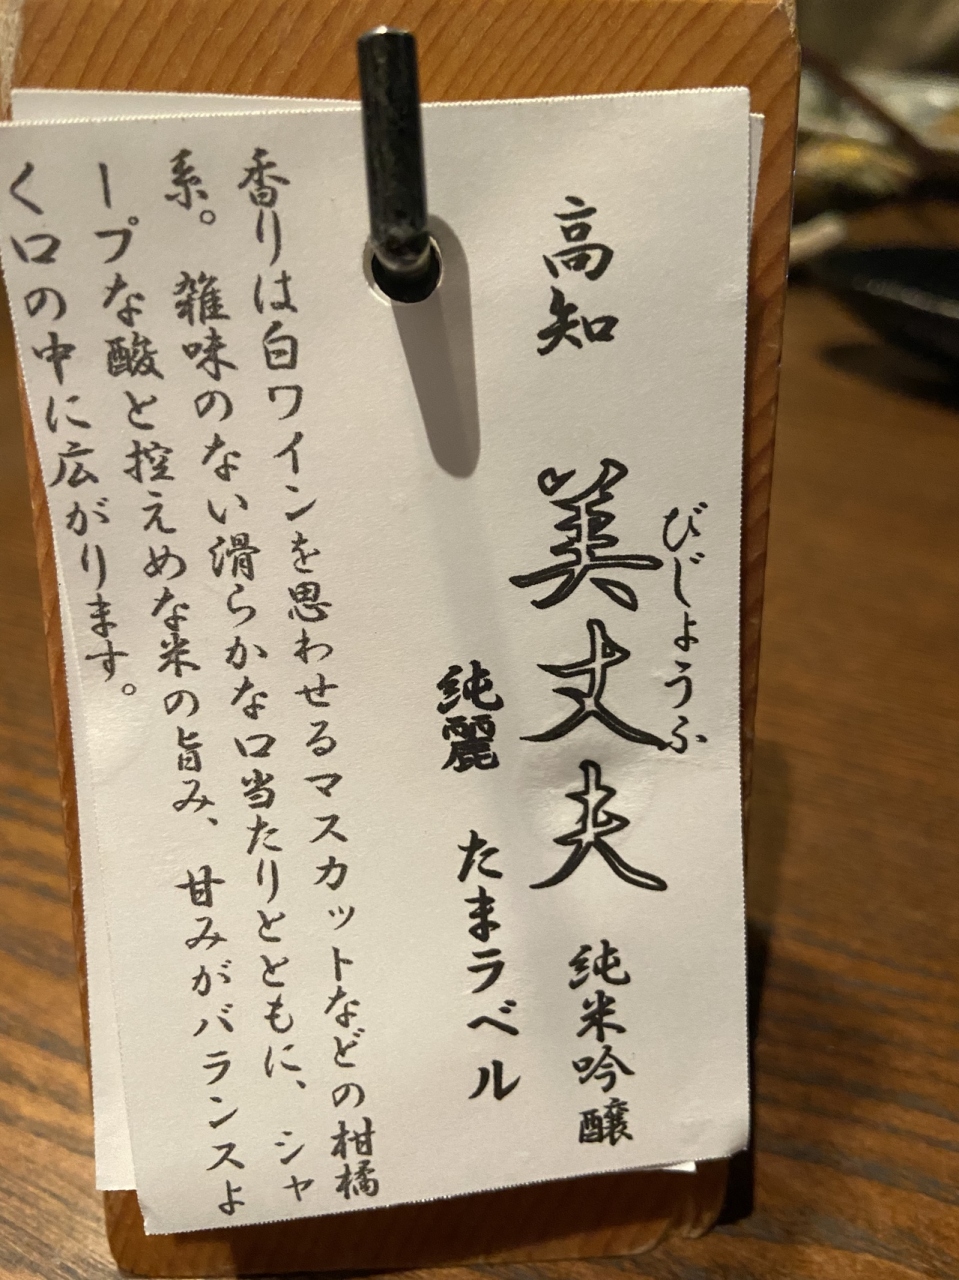 高知
美丈夫
びじょうふ
純米吟醸
純麗 たまラベル
香りは白ワインを思わせるマスカットなどの柑橘
系。雑味のない滑らかな口当たりとともに、シャ
ープな酸と控えめな米の旨み、甘みがバランスよ
く口の中に広がります。